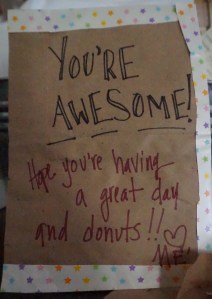 YOU'RE
AWESOME!
Hope you're having
a great day
and donuts!!